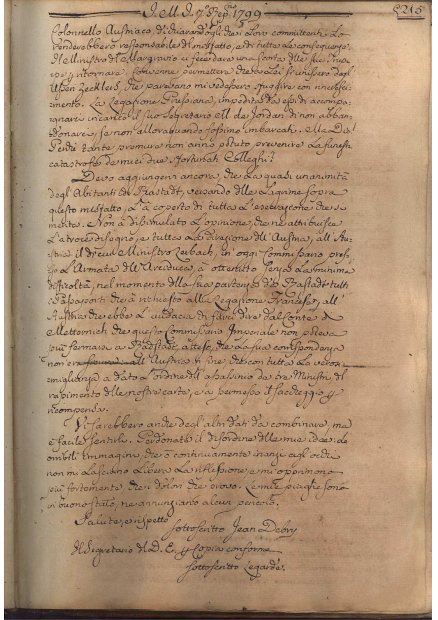 I. M. I. 7. Sep. 1799
Colonnello Austriaco, dichiarandogli che i loro committenti lo
renderebbero responsabile del misfatto, e di tutte le conseguenze.
il Ministro del Margravio ci fece dare una scorta delle sue truppe
per ritornare. Convenne permettere che tra Lei si unissero degli
Usseri Zeckleri, che parevano mi vedessero fuggire con rincresci-
mento. La legazione Prussiana, impedita da essi di accompa-
gnarci incaricò il suo Segretario M. de Jordan di non abban-
donarci, se non allora quando fossimo imbarcati. Ella Dis!
Perchè tante premure non anno potuto prevenire la funesta
catastrofe de miei due sfortunati Colleghi!
Devo aggiungervi ancora, che la quasi unanimità
degli Abitanti di Rastadt, versando delle lagrime sopra
questo misfatto, l'à coperto di tutta l'esecrazione che
merita. Non à dissimulato l'opinione, che ne attribuisce
l'atroce disegno, e tutta la direzione all' Austria, all' Au-
stria il di cui Ministro Lerbach, in oggi Commissario pres-
so l'Armata dell' Arciduca, à ottenuto senza la minima
difficoltà, nel momento della sua partenza da Rastadt tutti
i Passaporti che à richiesto alla Legazione Francese, all'
Austria che ebbe l'audacia di farci dire dal Conte de
Metternich che questo Commissario Imperiale non poteva
più fermarsi a Rastadt, atteso, che la sua corrispondenza
non era sicura: all' Austria in fine che con tutta la veros-
simiglianza à dato l'ordine dell' assassinio de tre Ministri, del
rapimento delle nostre carte, e à permesso il saccheggio per
ricompensa.
Vi sarebbero anche degli altri dati da combinare, ma
è facile sentirli. Perdonate il disordine delle mie idee: le
orribili immagini, che ò continuamente innanzi agli occhi
non mi lasciano libera la riflessione, e mi opprimono
più fortemente, che i dolori che provo. Le mie piaghe sono
in buono stato, ne annunziano alcun pericolo.
Salute, e rispetto
sottoscritto Jean Debry
Il Segretario del D. E. per Copia conforme
sottoscritto Legarde.